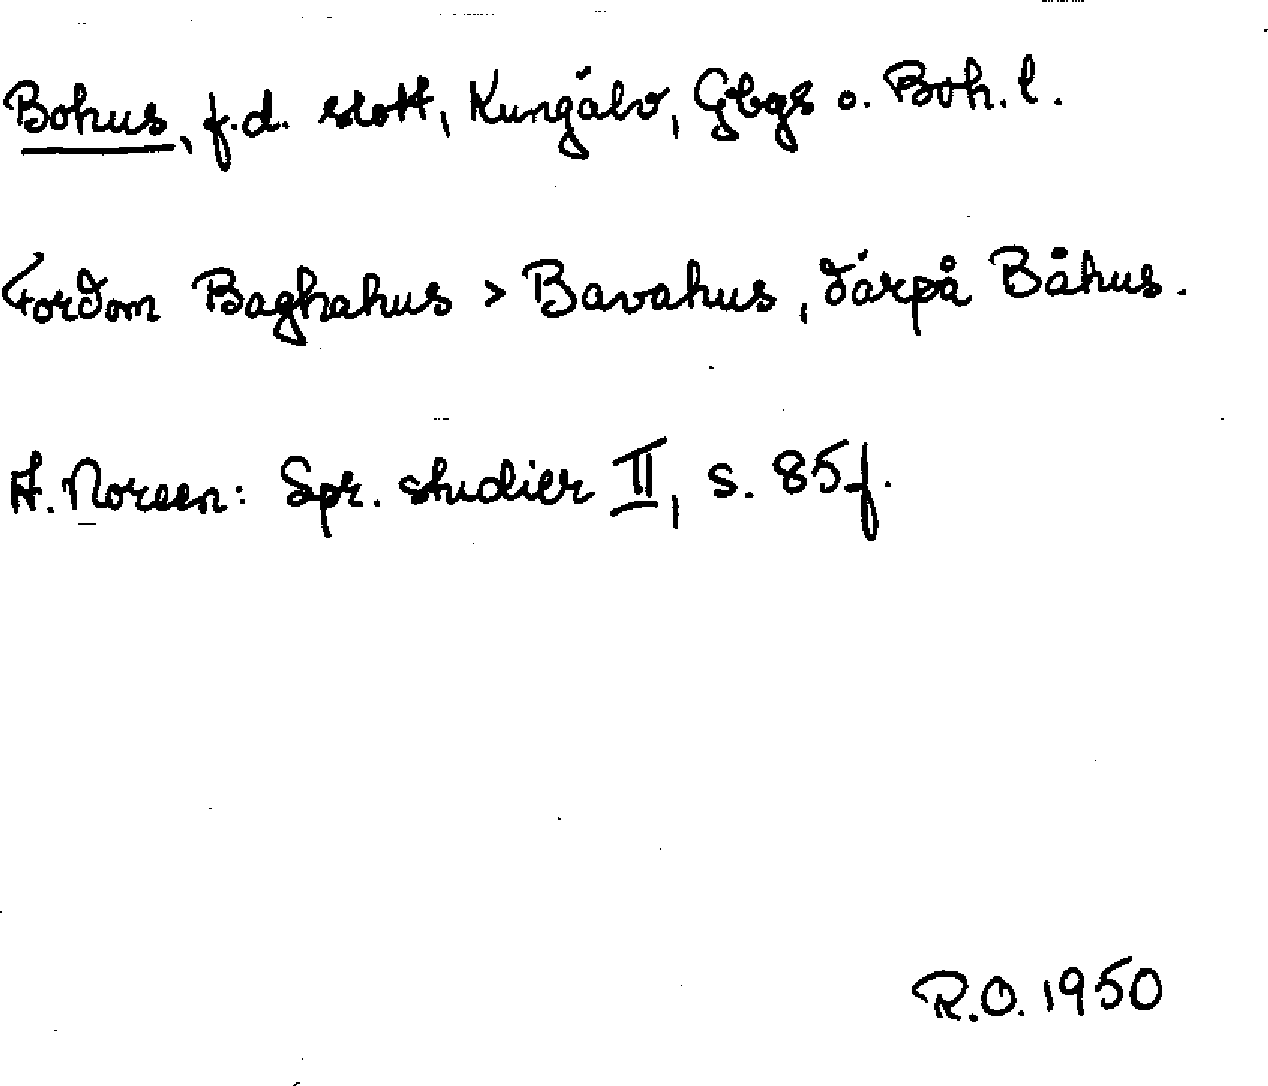 Bohus, f.d. slott, Kungälv, Gbgs o. Boh. l.
Fordom Baghahus > Bavahus, därpå Båhus.
A. Noreen: Spr. studier II, s. 85 f.
R.O. 1950